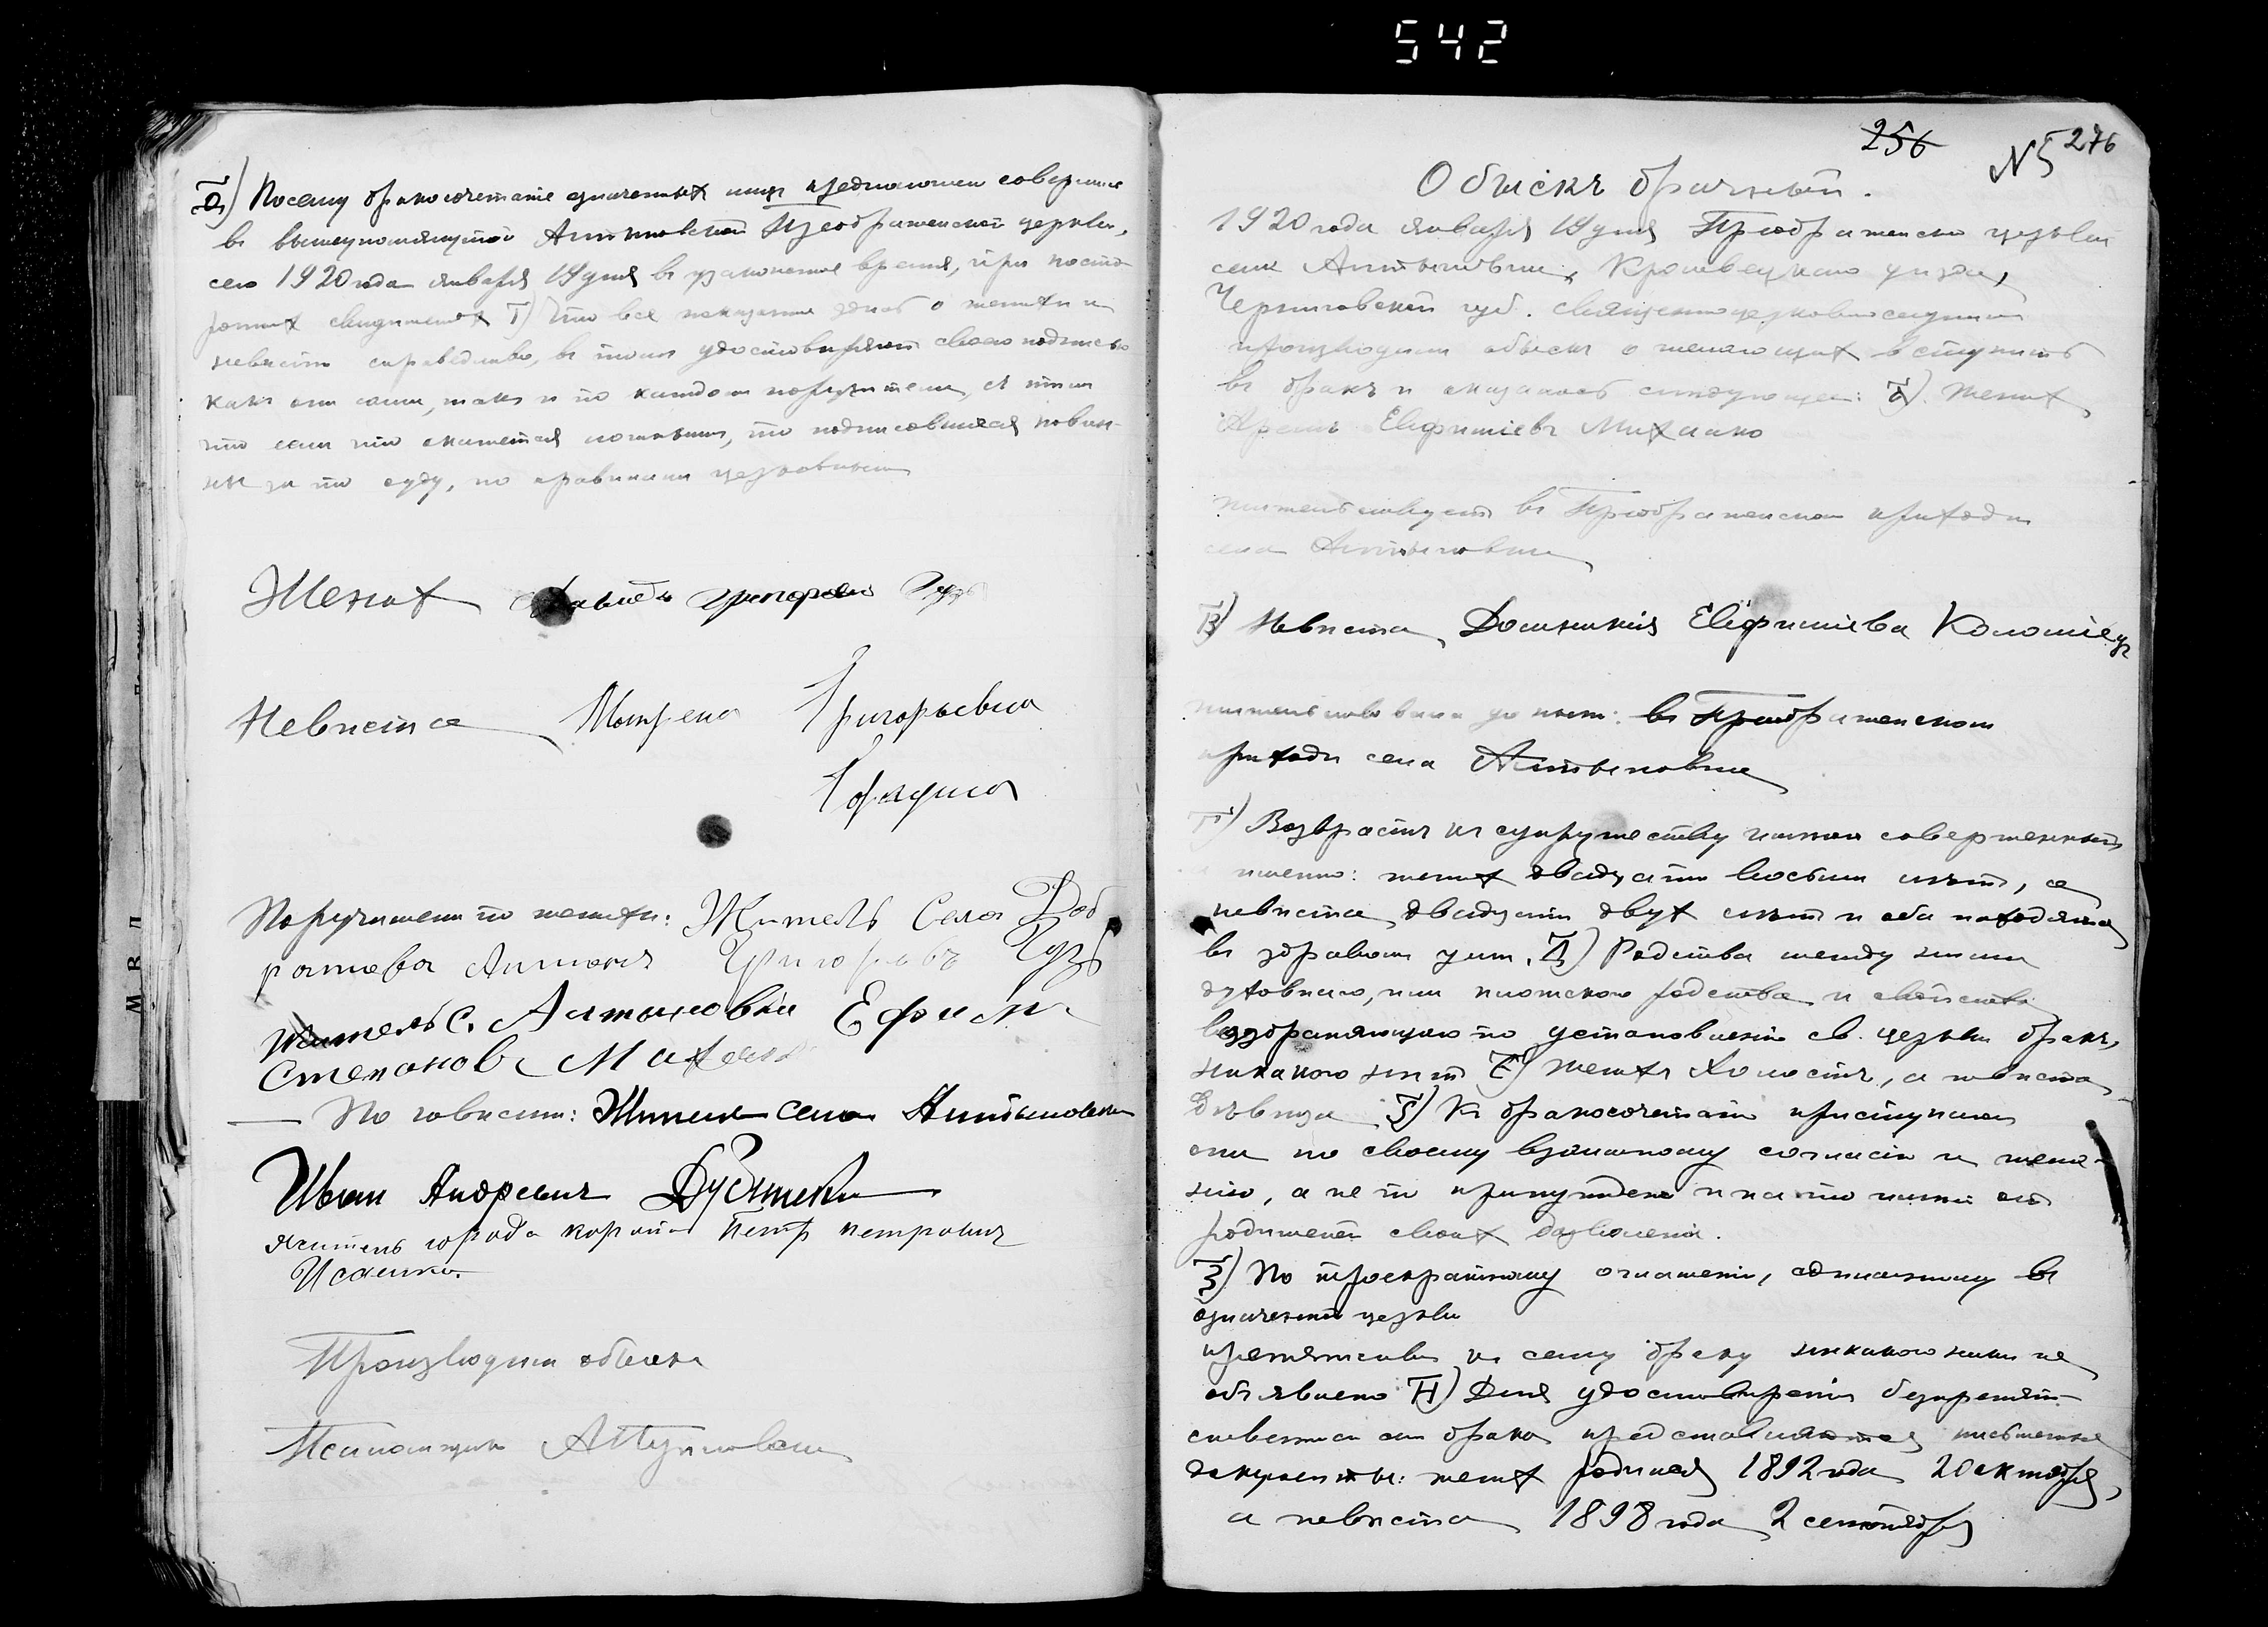 542
Ѳ) Посему бракосочетаніе означенныхъ лицъ предположено совершить
въ вышеупомянутой Алтыновской Преображенской церкви,
сего 1920 года января 19 дня въ узаконенное время, при посто-
роннихъ свидѣтеляхъ І) Что все показанное здѣсь о женихѣ и
невѣстѣ справедливо, въ томъ удостовѣряютъ своею подписью
какъ они сами, такъ и по каждомъ поручители, съ тѣмъ
что если что окажется ложнымъ, то подписавшіеся повин-
ны за то суду, по правиламъ церковнымъ
Женихъ Григоріевъ Гузь
Невѣста Мотрена Григорьевна
Поручители по женихѣ: Житель Села Доб
ротова Антонъ Григорьевъ Гузь
Житель с. Алтыновки Ефимъ
Степановъ
По невѣстѣ: Житель села Алтыновки
Иван Андреевич
житель города Коропа Петр Петрович
Исаенко.
Производили обыскъ
Псаломщикъ
256 N 5 276
Обыскъ брачный.
1920 года января 19 дня Преображенской церкви
села Алтыновки, Кролевецкаго уѣзда,
Черниговской губ. священноцерковнослужители
производили обыскъ о желающихъ вступить
въ бракъ и оказалось слѣдующее: а). Женихъ
Евфиміевъ Михалко
жительствуетъ въ Преображенскомъ приходѣ
села Алтыновки
В) Невѣста Домникія Евфиміева Коломіецъ
жительствовала до нынѣ: въ Преображенскомъ
приходѣ села Алтыновки
Г) Возрастъ къ супружеству имѣютъ совершенный
именно: женихъ двадцати восьми лѣтъ, а
невѣста двадцати двухъ лѣтъ и оба находятся
въ здравомъ умѣ. Д) Родства между ними
духовнаго, или плотскаго родства и свойства
возбраняющаго по установленію св. церкви бракъ,
никакого нѣтъ Е) Женихъ Холостъ, а невѣста
Дѣвица Ѕ) Къ бракосочетанію приступаютъ
они по своему взаимному согласію и жела-
нію, а не по принужденію и на то имѣютъ отъ
родителей своихъ дозволеніе.
З) По троекратному оглашенію, сдѣланному въ
означенной церкви
препятствія къ сему браку никакого никѣмъ не
объявлено И) Для удостовѣренія безпрепят-
ственности сего брака представляются письменные
документы: женихъ родился 1892 года 20 октября,
а невѣста 1898 года 2 сентября